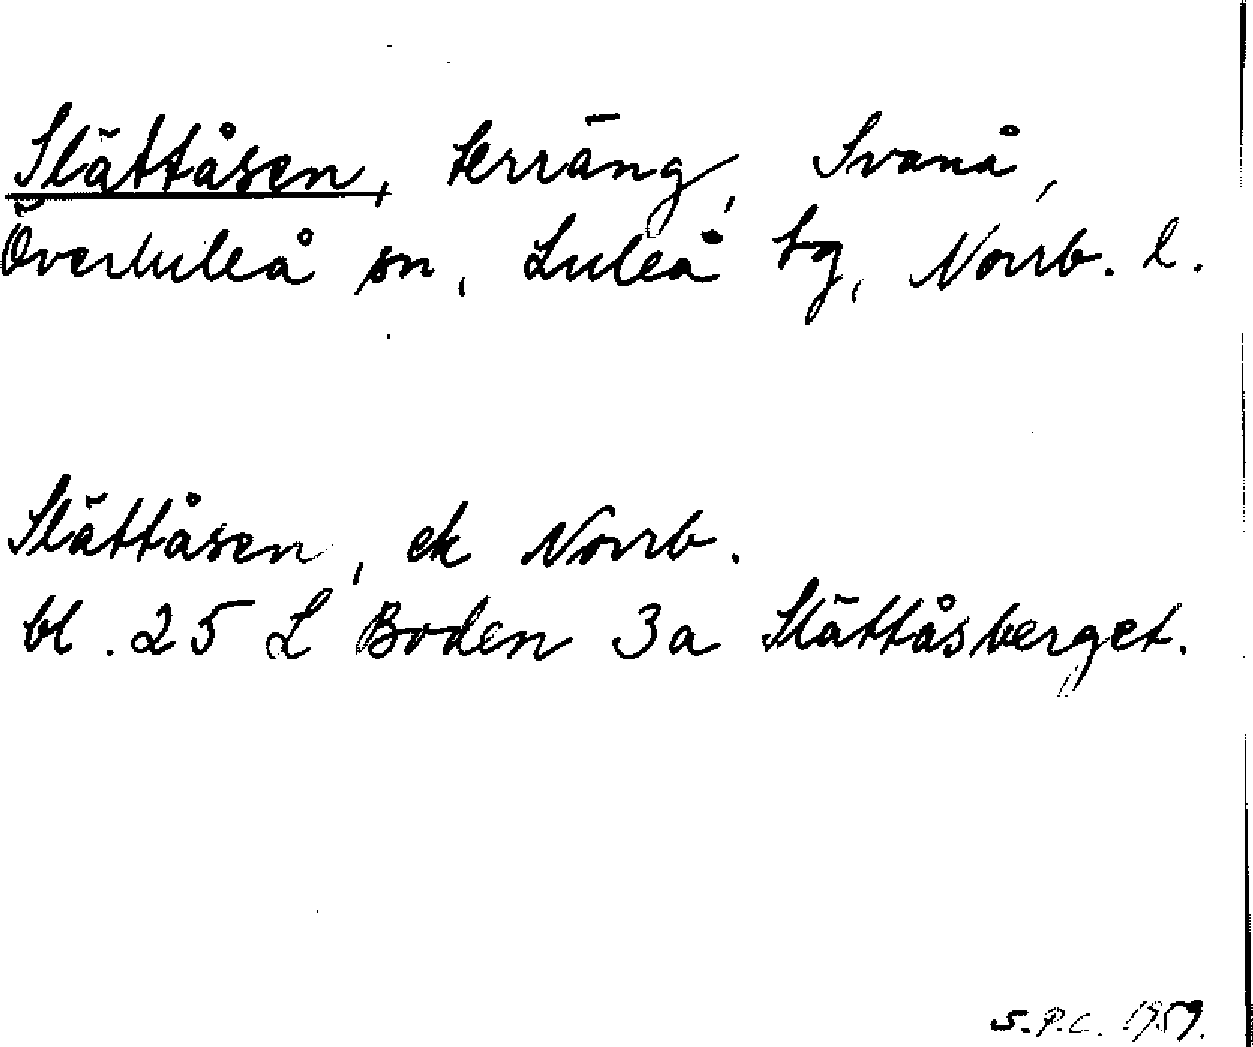 Slättåsen, terräng, Svanå,
Överluleå sn, Luleå tg, Norrb. l.
Slättåsen, ek Norrb.
bl. 25 L Boden 3a Slättåsberget.
S.P.C. 1959.